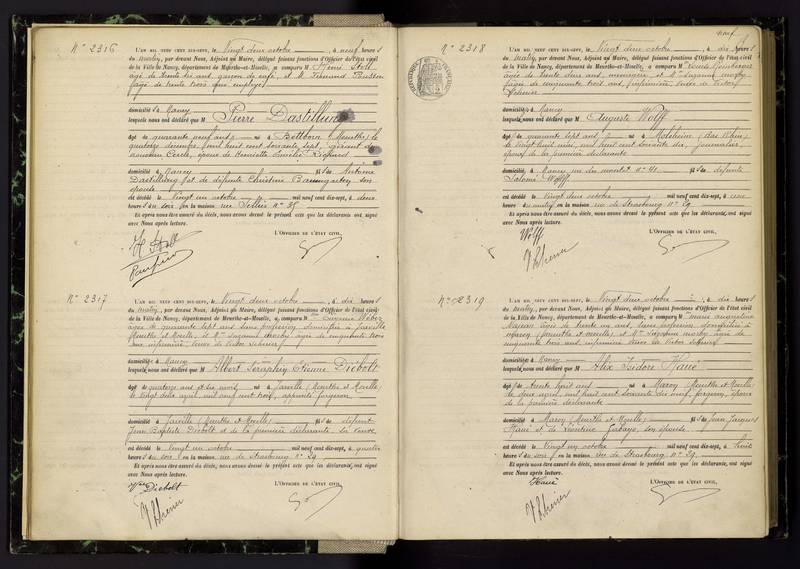 N° 2316
L'AN MIL NEUF CENT DIX-SEPT, le Vingt deux octobre, à neuf heures
du matin, par devant Nous, Adjoint au Maire, délégué faisant fonctions d'Officier de l'état civil
de la Ville de Nancy, département de Meurthe-et-Moselle, a comparu M René Stoll
âgé de trente six ans, garçon de café, et M Fernand
âgé de trente trois ans, employé
domiciliés à Nancy
lesquels nous ont déclaré que M Pierre Dastilling
âgé de quarante neuf ans, né à Bettborn (Meurthe) le
quatorze décembre mil huit cent soixante sept, gérant du
nouveau Cercle, époux de Henriette Emélie
domicilié à Nancy fils de Antoine
Dastilling et de défunte Christine Baumgarten son
épouse
est décédé le Vingt un octobre mil neuf cent dix-sept, à deux
heures du soir en la maison rue Sellier n° 38
Et après nous être assuré du décès, nous avons dressé le présent acte que les déclarants ont signé
avec Nous après lecture.
L'OFFICIER DE L'ÉTAT CIVIL,
H Stoll
N° 2317
L'AN MIL NEUF CENT DIX-SEPT, le Vingt deux octobre, à dix heures
du matin, par devant Nous, Adjoint au Maire, délégué faisant fonctions d'Officier de l'état civil
de la Ville de Nancy, département de Meurthe-et-Moselle, a comparu M Eugénie Weber
âgée de quarante sept ans sans profession domiciliée à Jarville
Meurthe et Moselle, et Mme Suzanne âgée de cinquante trois
ans infirmière, veuve de Victor
domiciliés à Nancy
lesquels nous ont déclaré que M Albert Séraphin Etienne Diebolt
âgé de quatorze ans et dix mois, né à Jarville (Meurthe et Moselle)
le vingt deux, mil neuf cent trois, apprenti forgeron
domicilié à Jarville (Meurthe et Moselle) fils de défunt
Jean Baptiste Diebolt et de la première déclarante, sa veuve
est décédé le Vingt un octobre mil neuf cent dix-sept, à quatre
heures du soir en la maison rue de Strasbourg n° 29
Et après nous être assuré du décès, nous avons dressé le présent acte que les déclarants ont signé
avec Nous après lecture.
L'OFFICIER DE L'ÉTAT CIVIL,
Vve Diebolt
neuf
N° 2318
L'AN MIL NEUF CENT DIX-SEPT, le Vingt deux octobre, à dix heures
du matin, par devant Nous, Adjoint au Maire, délégué faisant fonctions d'Officier de l'état civil
de la Ville de Nancy, département de Meurthe-et-Moselle, a comparu M
âgée de trente deux ans, ménagère, et Mme Suzanne
âgée de cinquante trois ans, infirmière, veuve de Victor
domiciliés à Nancy
lesquels nous ont déclaré que M Auguste Wolff
âgé de quarante sept ans, né à Molsheim (Bas Rhin)
le vingt huit mil huit cent soixante dix, journalier,
époux de la première déclarante
domicilié à Nancy, rue du n° 41 fils de défunte
Salomé Wolff
est décédé le Vingt deux octobre mil neuf cent dix-sept, à une
heure du matin en la maison rue de Strasbourg n° 29
Et après nous être assuré du décès, nous avons dressé le présent acte que les déclarants ont signé
avec Nous après lecture.
L'OFFICIER DE L'ÉTAT CIVIL,
Wolff
N° 2319
L'AN MIL NEUF CENT DIX-SEPT, le Vingt deux octobre, à dix heures
du matin, par devant Nous, Adjoint au Maire, délégué faisant fonctions d'Officier de l'état civil
de la Ville de Nancy, département de Meurthe-et-Moselle, a comparu M Marie
âgée de trente un ans, sans profession, domiciliée à
Maron (Meurthe et Moselle) et Mme Suzanne âgée de
cinquante trois ans infirmière veuve de Victor
domiciliés à Nancy
lesquels nous ont déclaré que M Alix Isidore Haué
âgé de trente huit ans né à Maron (Meurthe et Moselle)
le deux avril mil huit cent soixante dix neuf, forgeron, époux
de la première déclarante
domicilié à Maron (Meurthe et Moselle) fils de Jean Jacques
Haué et de son épouse
est décédé le Vingt un octobre mil neuf cent dix-sept, à huit
heures du soir en la maison rue de Strasbourg n° 29
Et après nous être assuré du décès, nous avons dressé le présent acte que les déclarants ont signé
avec Nous après lecture.
L'OFFICIER DE L'ÉTAT CIVIL,
Haué